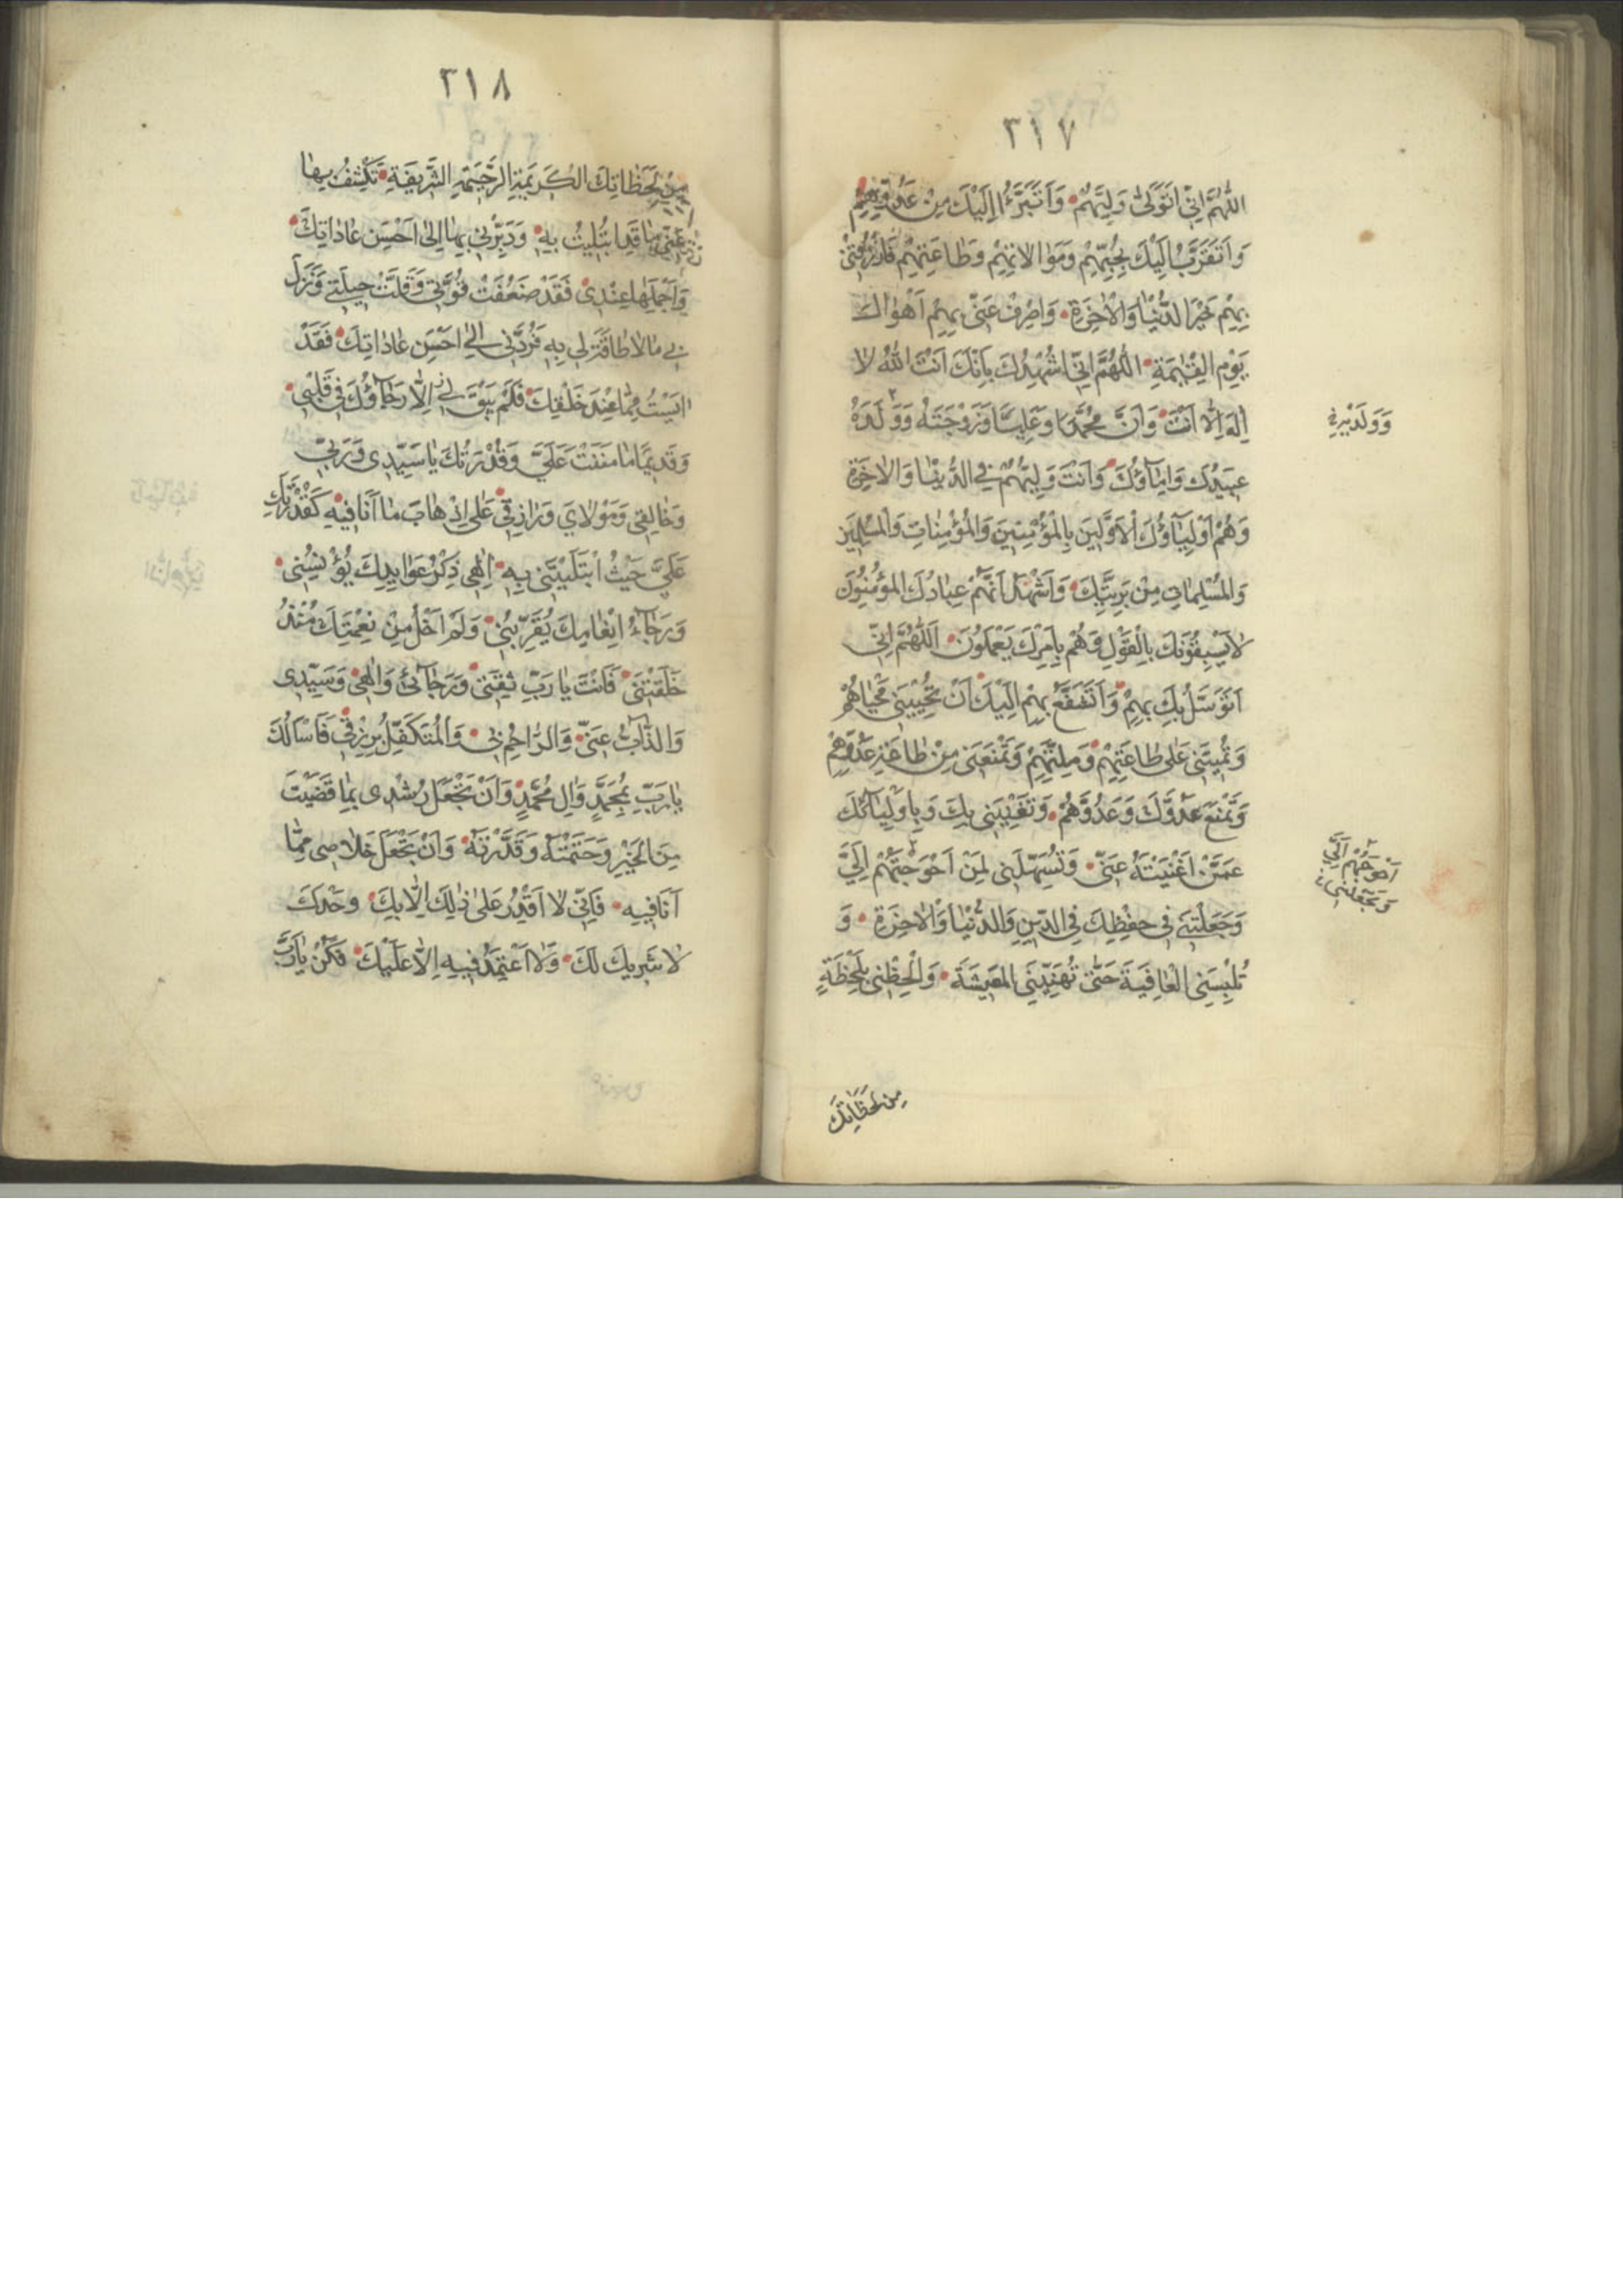 ٣١٧
اللّٰهُمَّ اِنّى اَتَوَلّىٰ وَلِيَّهُمْ وَاَتَبَرَّءُ اِلَيْكَ مِنْ عَدُوِّهِمْ
وَاَتَقَرَّبُ اِلَيْكَ بِحُبِّهِمْ وَمُوَالاتِهِمْ وَطَاعَتِهِمْ فَارْزُقْنى
بِهِمْ خَيْرَ الدُّنْيٰا وَالْاٰخِرَةِ وَاصْرِفْ عَنّى بِهِمْ اَهْوٰالَ
يَوْمِ الْقِيٰمَةِ اللّٰهُمَّ اِنّى اُشْهِدُكَ بِاَنَّكَ اَنْتَ اللّٰهُ لا
اِلٰهَ اِلّا اَنْتَ وَاَنَّ مُحَمَّدًا وَعَلِيًّا وَزَوْجَتَهُ وَوَلَدَهُ
وَوَلَدَيْهِ
عَبِيدُكَ وَاِمٰآؤُكَ وَاَنْتَ وَلِيُّهُمْ فِي الدُّنْيٰا وَالاٰخِرَةِ
وَهُمْ اَوْلِيٰآؤُكَ الْاَوَّلينَ بِالْمُؤْمِنينَ وَالْمُؤْمِنٰاتِ وَالْمُسْلِمينَ
وَالْمُسْلِمٰاتِ مِنْ بَرِيَّتِكَ وَاَشْهَدُ اَنَّهُمْ عِبٰادُكَ الْمُؤْمِنُونَ
لٰا يَسْبِقُونَكَ بِالْقَوْلِ وَهُمْ بِاَمْرِكَ يَعْمَلُونَ اَللّٰهُمَّ اِنّى
اَتَوَسَّلُ بِكَ بِهِمْ وَاَتَشَفَّعُ بِهِمْ اِلَيْكَ اَنْ تُحْيِيَنى مَحْيٰاهُمْ
وَتُمِيتَنى عَلى طٰاعَتِهِمْ وَمِلَّتِهِمْ وَتَمْنَعَنى مِنْ طٰاعَةِ عَدُوِّهِمْ
وَتَمْنَعَ عَدُوَّكَ وَعَدُوَّهُمْ وَتُغْنِيَنى بِكَ وَبِاَوْلِيٰآئِكَ
عَمَّنْ اَغْنَيْتَهُ عَنّى وَتُسَهِّلَنى لِمَنْ اَحْوَجْتَهُمْ اِلَيَّ
اَحْوَجَهُمْ اِلَيَّ
وَتَجْعَلَنى
وَجَعَلْتَنى فى حِفْظِكَ فِي الدّينِ وَالدُّنْيٰا وَالْاٰخِرَةِ وَ
تُلْبِسَنِى الْعٰافِيَةَ حَتّٰى تُهَنِّيَنِى الْمَعيشَةَ وَالْحَظْنى بِلَحْظَةٍ
مِنْ لَحَظٰاتِكَ
٣١٨
مِنْ لَحَظٰاتِكَ الْكَريمَةِ الرَّحيمَةِ الشَّريفَةِ تَكْشِفُ بِهٰا
عَنّى مٰا قَدِ ابْتُليتُ بِهِ وَدَبِّرْنى بِهٰا اِلىٰ اَحْسَنِ عٰادٰاتِكَ
وَاَجْمَلِهٰا عِنْدى فَقَدْ ضَعُفَتْ قُوَّتى وَقَلَّتْ حيلَتى وَنَزَلَ
بى مٰا لا طٰاقَةَ لى بِهِ فَرُدَّنى اِلىٰ اَحْسَنِ عٰادٰاتِكَ فَقَدْ
ايَسْتُ مِمّٰا عِنْدَ خَلْقِكَ فَلَمْ يَبْقَ اِلّٰا رَجٰآؤُكَ فى قَلْبى
وَقَديمًا مٰا مَنَنْتَ عَلَيَّ وَقُدْرَتُكَ يٰا سَيِّدى وَرَبّى
وَخٰالِقى وَمَوْلايَ وَرٰازِقى عَلىٰ اِذْهٰابِ مٰا اَنَا فيهِ كَقُدْرَتِكَ
عَلَيَّ حَيْثُ ابْتَلَيْتَنى بِهِ اِلٰهى ذِكْرُ عَوٰايِدِكَ يُؤْنِسُنى
وَرَجٰآءُ اِنْعٰامِكَ يُقَرِّبُنى وَلَمْ اَخْلُ مِنْ نِعْمَتِكَ مُنْذُ
خَلَقْتَنى فَاَنْتَ يٰا رَبِّ ثِقَتى وَرَجٰآئى وَاِلٰهى وَسَيِّدى
وَالذّٰآبُّ عَنّى وَالرّٰاحِمُ بى وَالْمُتَكَفِّلُ بِرِزْقى فَاَسْاَلُكَ
يٰا رَبِّ بِمُحَمَّدٍ وَاٰلِ مُحَمَّدٍ وَاَنْ تَجْعَلَ رُشْدى بِمٰا قَضَيْتَ
مِنَ الْخَيْرِ وَحَتَمْتَهُ وَقَدَّرْتَهُ وَاَنْ تَجْعَلَ خَلاصى مِمّٰا
اَنَا فيهِ فَاِنّى لا اَقْدِرُ عَلىٰ ذٰلِكَ اِلّٰا بِكَ وَحْدَكَ
لا شَريكَ لَكَ وَلا اَعْتَمِدُ فيهِ اِلّا عَلَيْكَ فَكُنْ يٰا رَبَّ